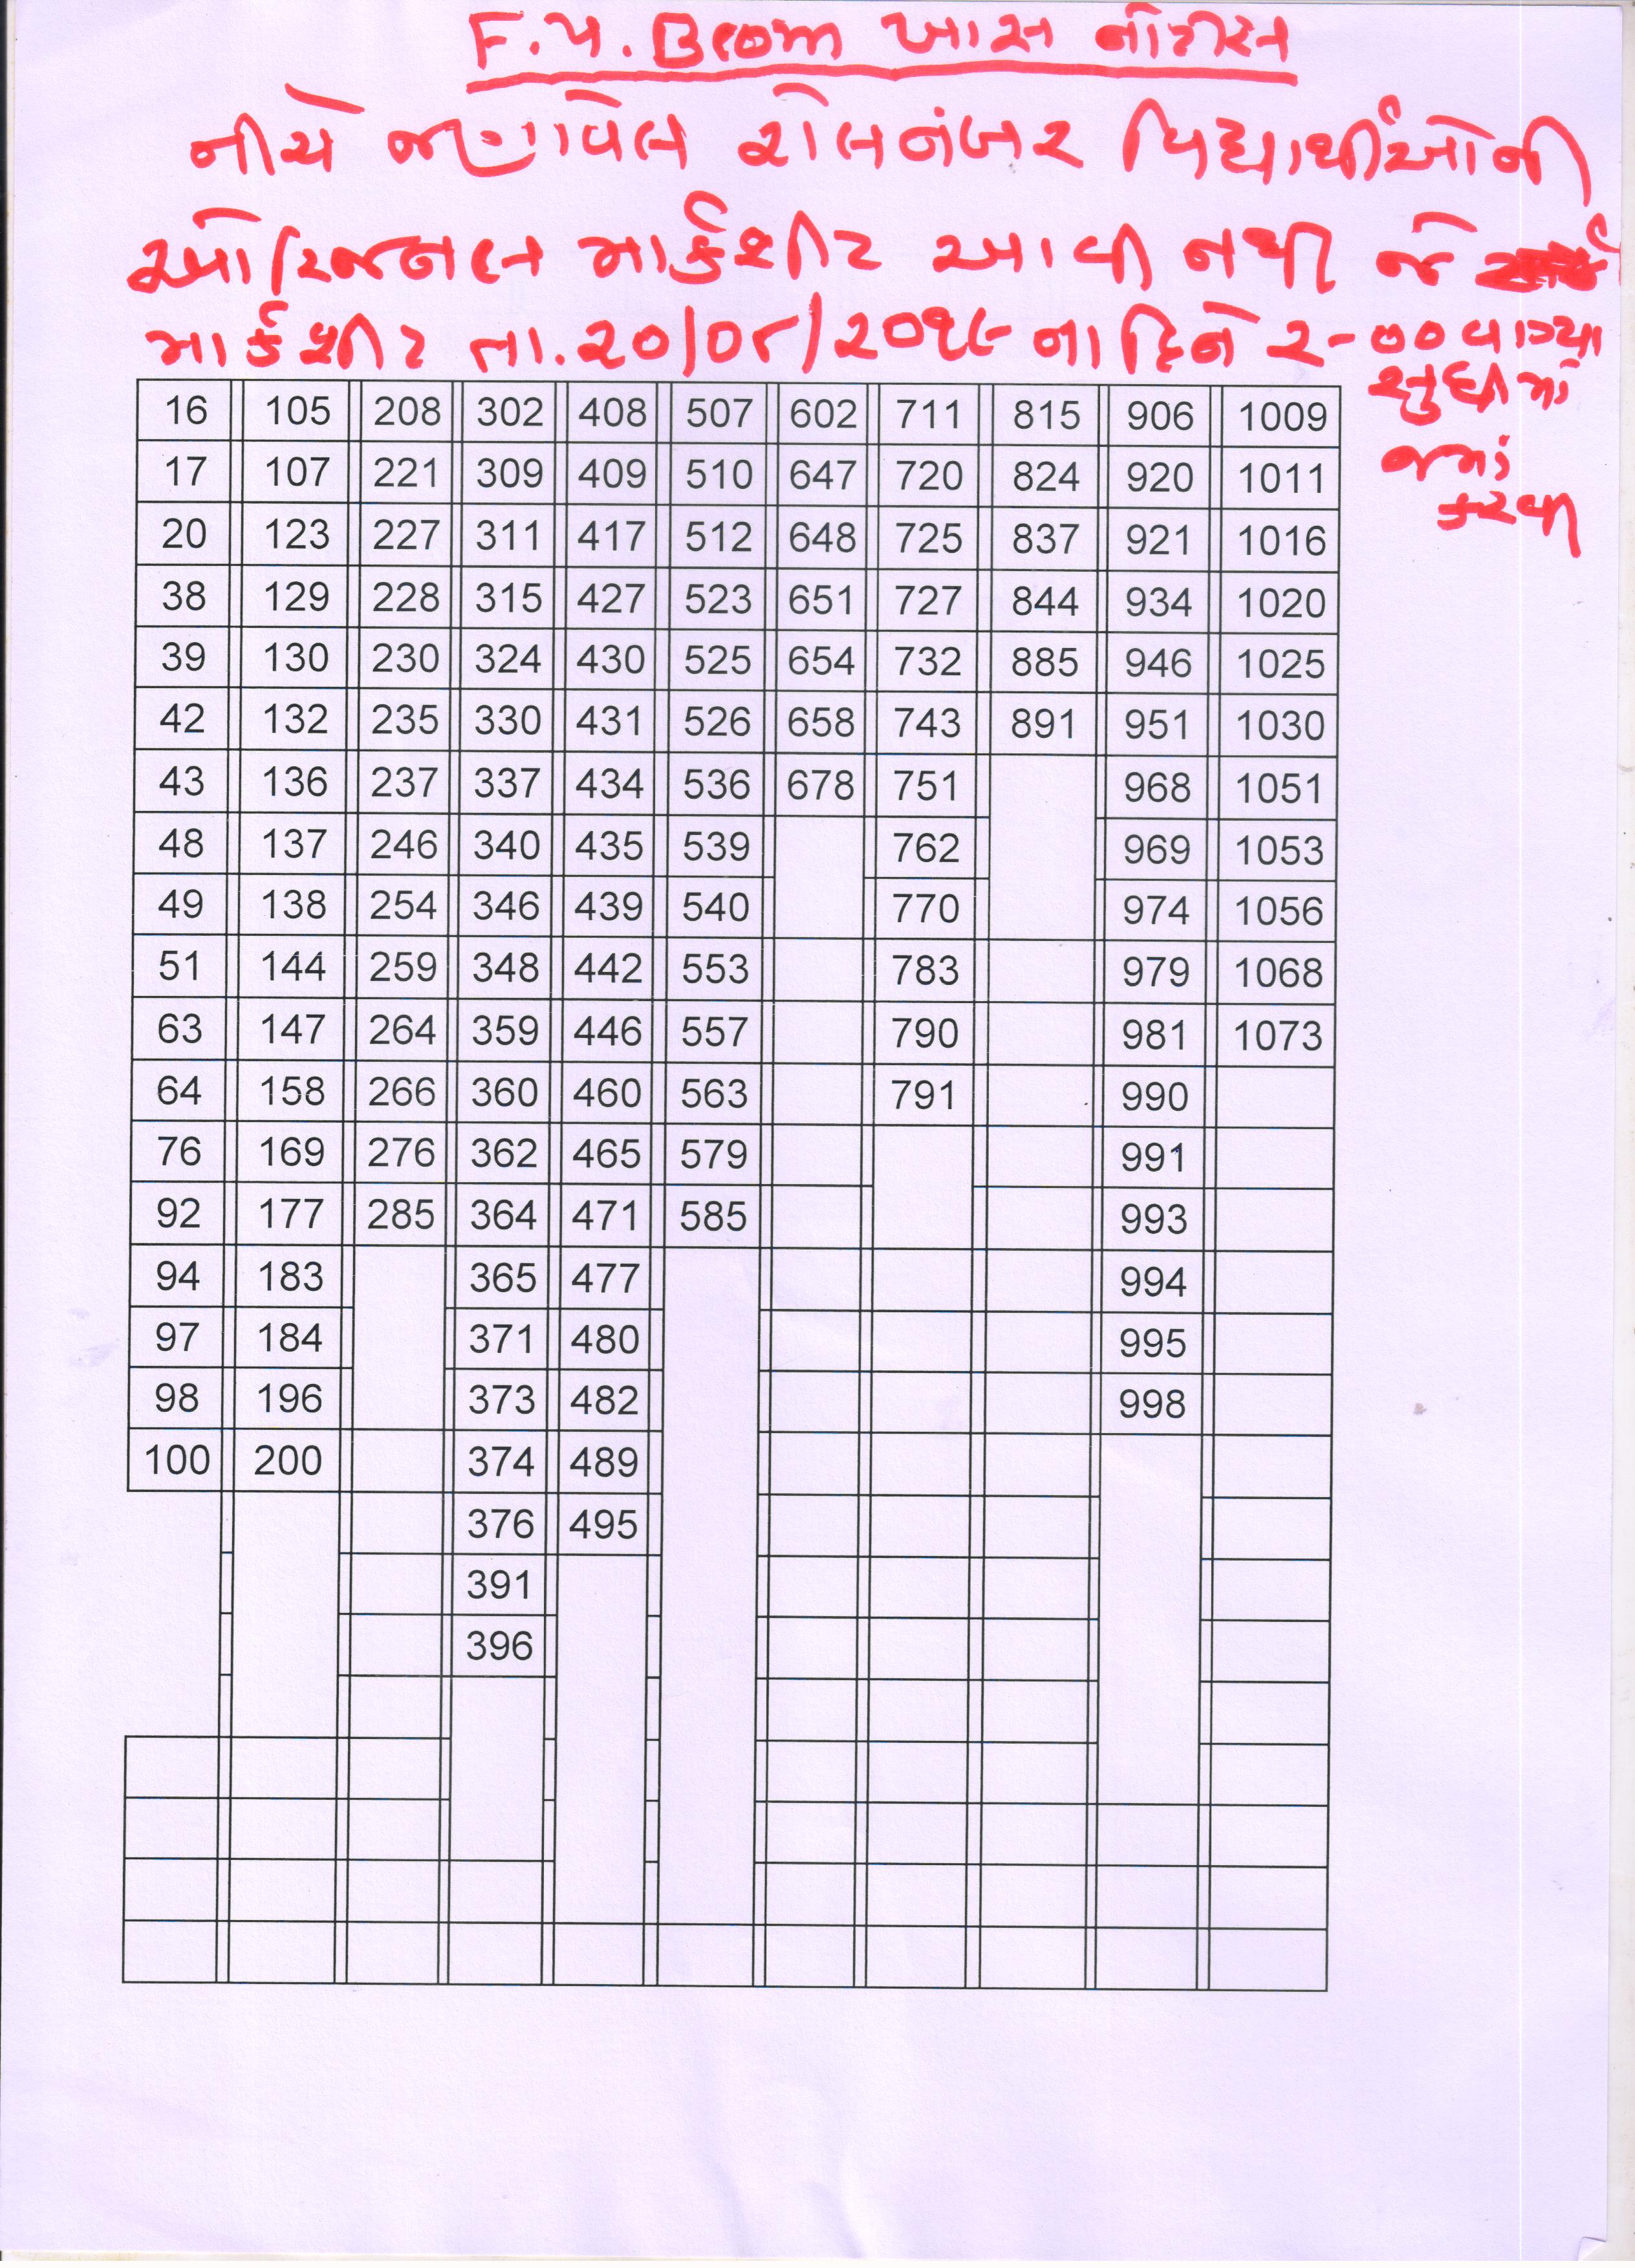 F.Y. Bcom ખાસ નોટીસ
નીચે જણાવેલ રોલનંબર વિદ્યાર્થીઓની
ઓરિજનલ માર્કશીટ આવી નથી જે
માર્કશીટ તા.૨૦/૦૮/૨૦૧૯ ના દિને ૨-૦૦ વાગ્યા
સુધીમાં
જમાં
કરવી
16 105 208 302 408 507 602 711 815 906 1009
17 107 221 309 409 510 647 720 824 920 1011
20 123 227 311 417 512 648 725 837 921 1016
38 129 228 315 427 523 651 727 844 934 1020
39 130 230 324 430 525 654 732 885 946 1025
42 132 235 330 431 526 658 743 891 951 1030
43 136 237 337 434 536 678 751 968 1051
48 137 246 340 435 539 762 969 1053
49 138 254 346 439 540 770 974 1056
51 144 259 348 442 553 783 979 1068
63 147 264 359 446 557 790 981 1073
64 158 266 360 460 563 791 990
76 169 276 362 465 579 991
92 177 285 364 471 585 993
94 183 365 477 994
97 184 371 480 995
98 196 373 482 998
100 200 374 489
376 495
391
396